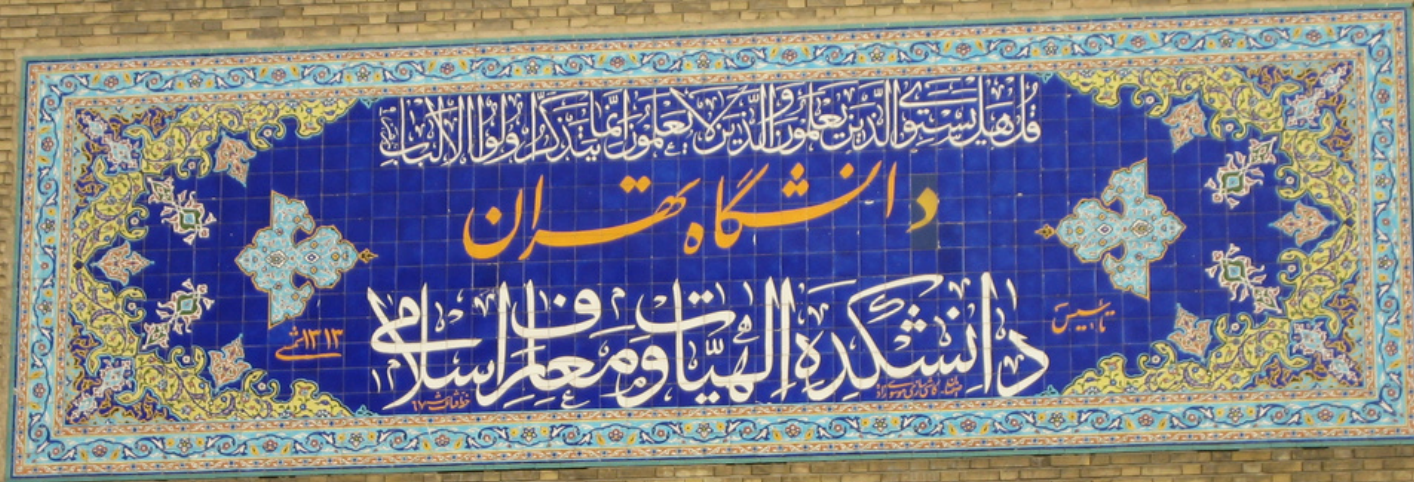 قُل هَل يَستَوِي الَّذينَ يَعلَمُونَ وَالَّذينَ لا يَعلَمُونَ إِنَّما يَتَذَكَّرُ أُولُوا الأَلبابِ
دانشگاه تهران
دانشکده الهیّات و معارف اسلامی
تاسیس
۱۳۱۳ شمسی